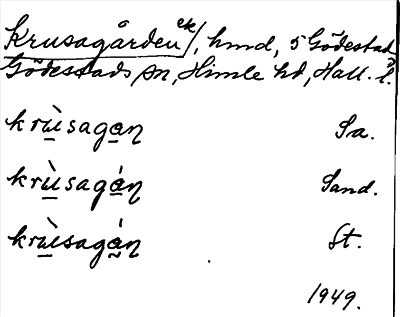 Krusagården ek/, hmd, 5 Gödestad
Gödestads sn, Himle hd, Hall. l.
krùsagan̡ Sa.
krùsagán̡ Sand.
krùsagán̡ St.
1949.